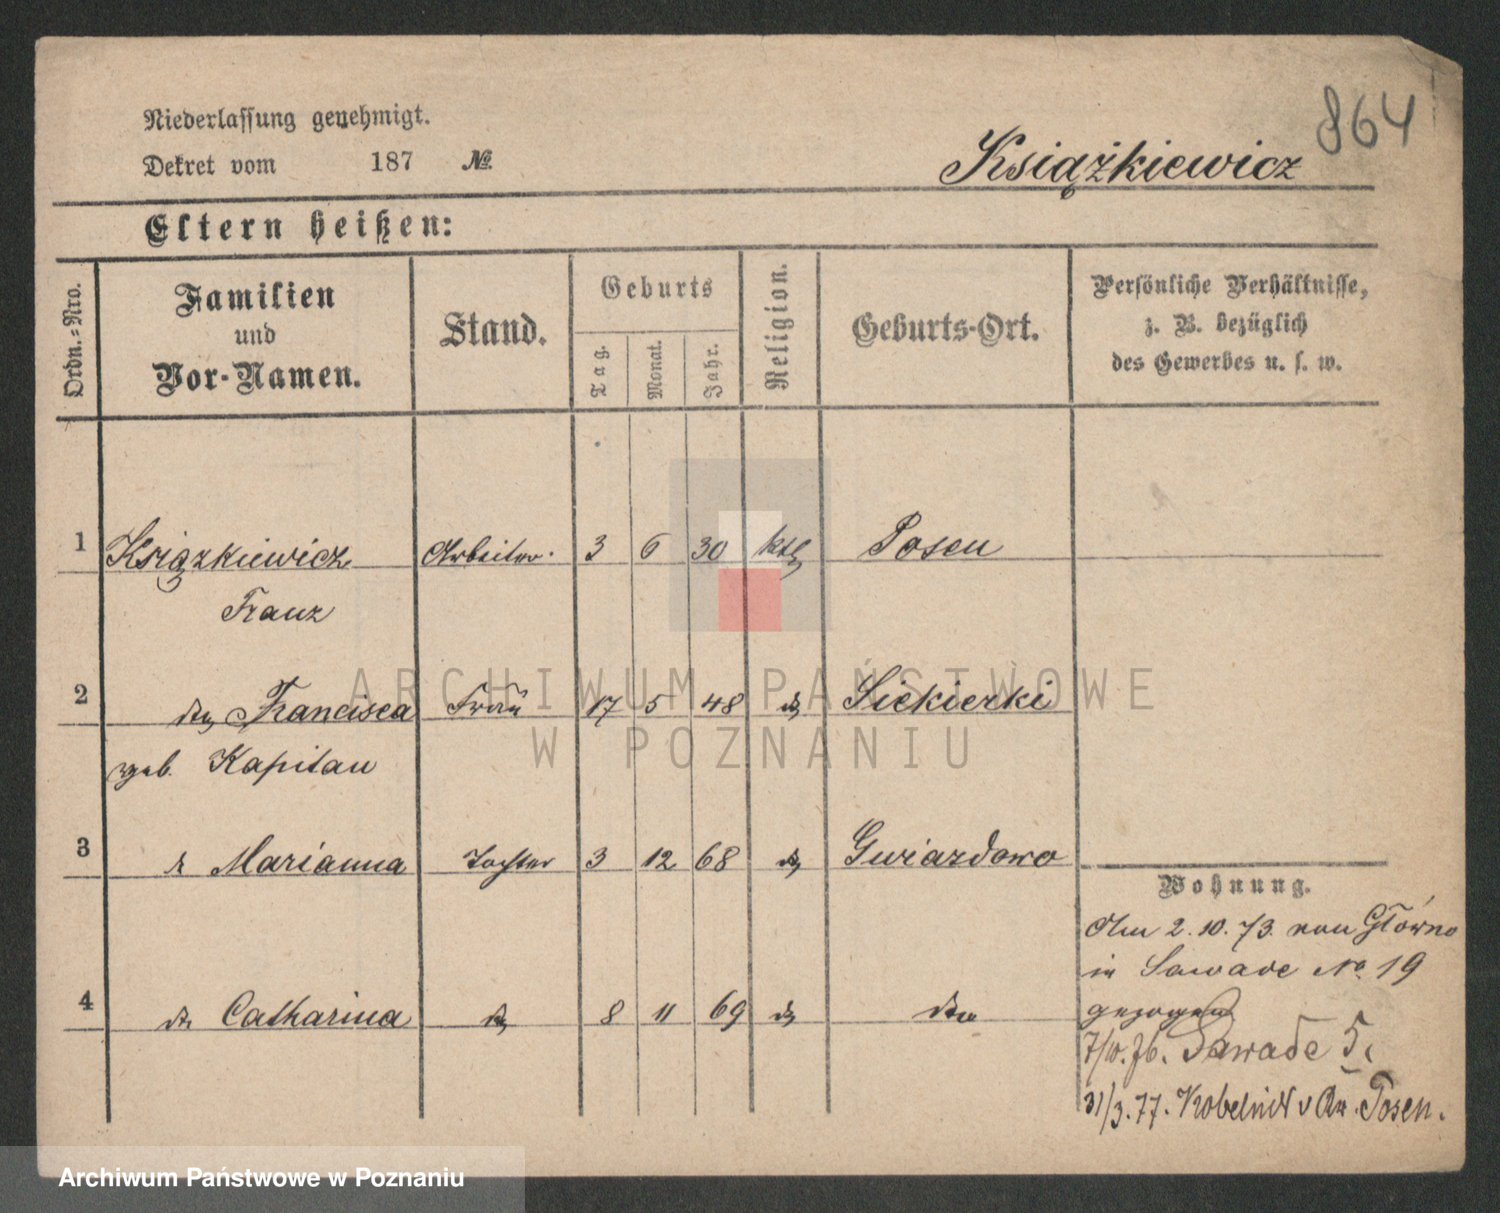 864
Niederlassung genehmigt.
Dekret vom 187 No.
Książkiewicz
Eltern heißen:
Ordn.-Nro.
Familien
und
Vor-Namen.
Stand.
Geburts
Tag.
Monat.
Jahr.
Religion.
Geburts-Ort.
Persönliche Verhältnisse,
z. B. bezüglich
des Gewerbes u. s. w.
1 Książkiewicz Arbeiter. 3 6 30 ktl Posen
Franz
2 dto Francisca Frau 17 5 48 do Siekierki
geb. Kapitan
3 Marianna Tochter 3 12 68 do Gwiazdowo
4 dto Catharina do 8 11 69 do dto
Wohnung.
Am 2.10.73. von Główno
in Sawade No. 19
gezogen
7/10.76. Zawade 5.
31/3.77. Posen.
ARCHIWUM PAŃSTWOWE
W POZNANIU
Archiwum Państwowe w Poznaniu